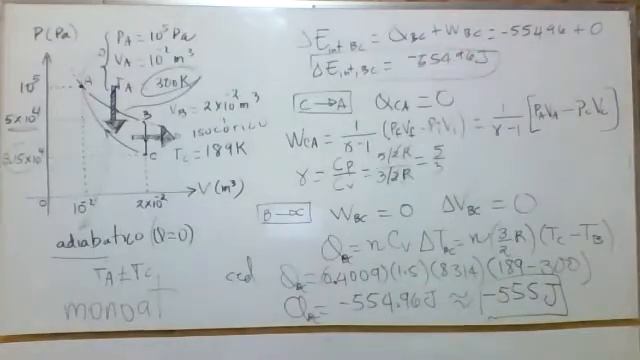 P(Pa)
P_A = 10^5 Pa
V_A = 10^-2 m^3
T_A 300K
10^5
A
V_B = 2×10^-2 m^3
5×10^4
B
ISOCÓRICO
3.15×10^4
C
T_C = 189K
0
10^-2
2×10^-2
V(m^3)
adiabático (Q=0)
T_A ≠ T_C
monoat
ΔE_int BC = Q_BC + W_BC = -554.96 + 0
ΔE_int,BC = -554.96J
C → A Q_CA = 0
W_CA = 1/(γ-1) (P_f V_f - P_i V_i) = 1/(γ-1) [P_A V_A - P_C V_C]
γ = C_P/C_V = (5/2 R)/(3/2 R) = 5/3
B → C W_BC = 0 ΔV_BC = 0
Q_BC = n C_V ΔT_BC = n (3/2 R) (T_C - T_B)
Q_BC = (0.4009)(1.5)(8.314)(189-300)
Q_BC = -554.96J ≈ -555J